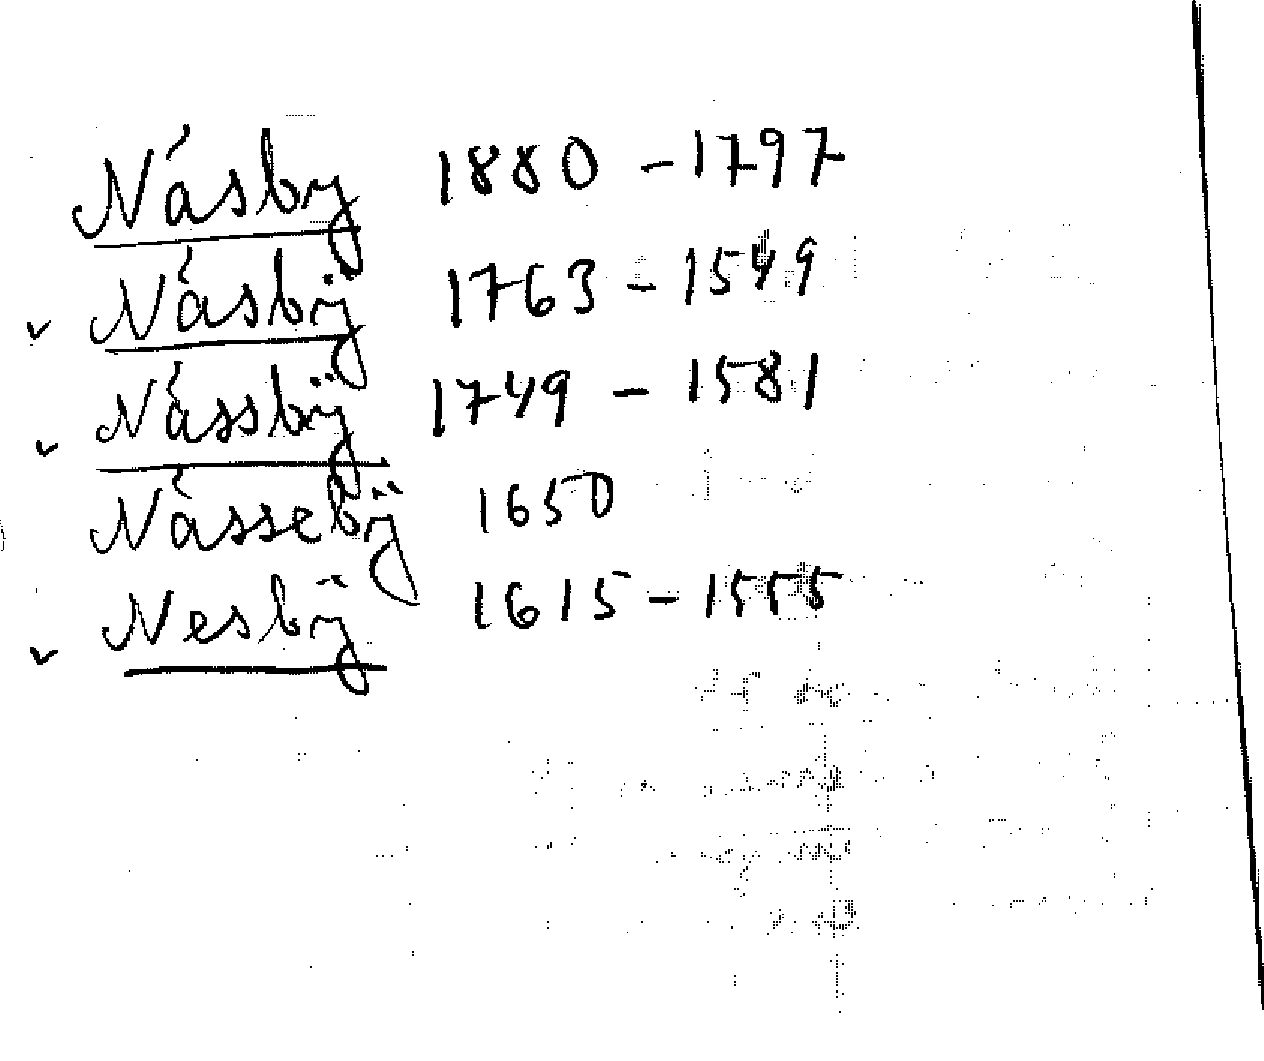 Násby 1880 - 1797
✓ Násbÿ 1763 - 1549
✓ Nássbÿ 1749 - 1581
Nássebÿ 1650
✓ Nesbÿ 1615 - 1555